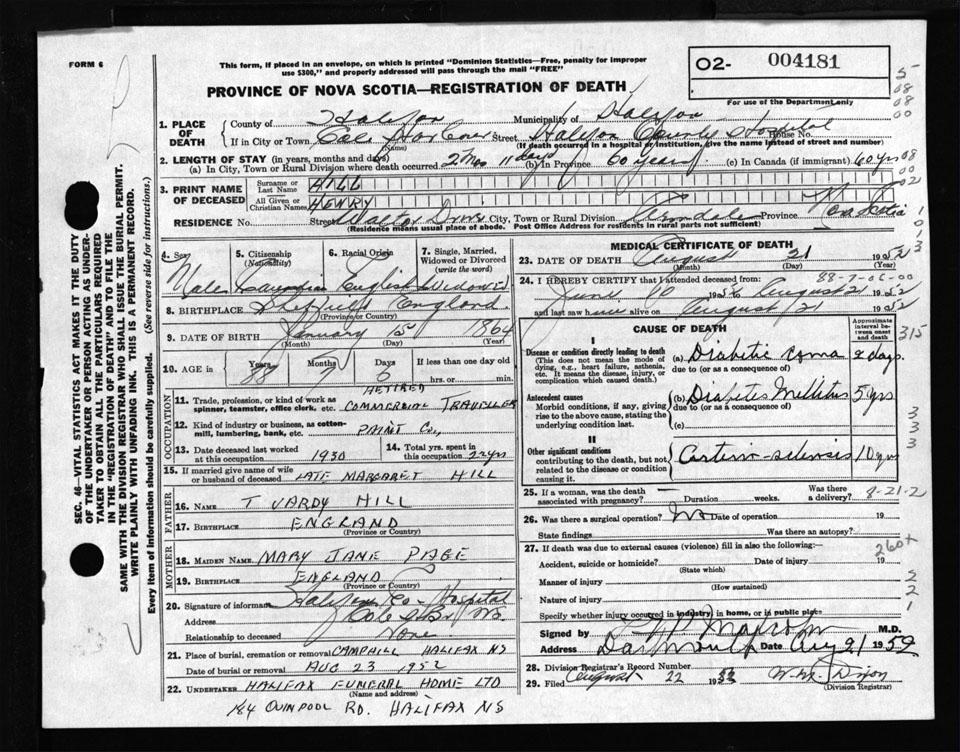 FORM 6
This form, if placed in an envelope, on which is printed "Dominion Statistics—Free, penalty for improper
use $300," and properly addressed will pass through the mail "FREE"
O2- 004181
For use of the Department only
PROVINCE OF NOVA SCOTIA—REGISTRATION OF DEATH
1. PLACE OF DEATH
County of Halifax Municipality of Halifax
If in City or Town Cole Harbour Street Halifax County Hospital House No.
(Name) (If death occurred in a hospital or institution, give the name instead of street and number)
2. LENGTH OF STAY (in years, months and days)
(a) In City, Town or Rural Division where death occurred 2 Mos 11 days (b) In Province 60 years (c) In Canada (if immigrant) 60 yrs
3. PRINT NAME OF DECEASED
Surname or Last Name HILL
All Given or Christian Names HENRY
RESIDENCE No. Street Walton Drive City, Town or Rural Division Armdale Province Nova Scotia
(Residence means usual place of abode. Post Office Address for residents in rural parts not sufficient)
4. Sex Male
5. Citizenship (Nationality) Canadian
6. Racial Origin English
7. Single, Married, Widowed or Divorced (write the word) Widowed
8. BIRTHPLACE Sheffield England
(Province or Country)
9. DATE OF BIRTH January 15 1864
(Month) (Day) (Year)
10. AGE in Years 88 Months 7 Days 6 If less than one day old hrs. or min.
OCCUPATION
11. Trade, profession, or kind of work as spinner, teamster, office clerk, etc. RETIRED COMMERCIAL TRAVELLER
12. Kind of industry or business, as cotton-mill, lumbering, bank, etc. PAINT Co.,
13. Date deceased last worked at this occupation 1930
14. Total yrs. spent in this occupation 22 yrs
15. If married give name of wife or husband of deceased LATE MARGARET HILL
FATHER
16. Name T VARDY HILL
17. Birthplace ENGLAND
MOTHER
18. Maiden Name MARY JANE PAGE
19. Birthplace ENGLAND
(Province or Country)
20. Signature of informant Halifax Co- Hospital
Address Cole Hbr N.S.
Relationship to deceased None
21. Place of burial, cremation or removal CAMPHILL HALIFAX NS
Date of burial or removal AUG 23 1952
22. UNDERTAKER HALIFAX FUNERAL HOME LTD
(Name and address)
184 QUINPOOL RD. HALIFAX NS
MEDICAL CERTIFICATE OF DEATH
23. DATE OF DEATH August 21 1952
(Month) (Day) (Year)
88-7-06-00
24. I HEREBY CERTIFY that I attended deceased from:
June 10 1952 to August 21 1952
and last saw h alive on August 21 1952
CAUSE OF DEATH
Approximate interval between onset and death
I
Disease or condition directly leading to death
(This does not mean the mode of dying, e.g., heart failure, asthenia, etc. It means the disease, injury, or complication which caused death.)
(a) Diabetic coma 2 days.
due to (or as a consequence of)
Antecedent causes
Morbid conditions, if any, giving rise to the above cause, stating the underlying condition last.
(b) Diabetes Mellitus 5 yrs
due to (or as a consequence of)
(c)
II
Other significant conditions
contributing to the death, but not related to the disease or condition causing it.
Arterio-sclerosis 10 yrs
25. If a woman, was the death associated with pregnancy? — Duration weeks. Was there a delivery?
8-21-2
26. Was there a surgical operation? No Date of operation 19
State findings Was there an autopsy?
27. If death was due to external causes (violence) fill in also the following:—
Accident, suicide or homicide? Date of injury 19
(State which)
Manner of injury
(How sustained)
Nature of injury
Specify whether injury occurred in industry, in home, or in public place
Signed by M.D.
Address Dartmouth Date Aug 21 1952
28. Division Registrar's Record Number
29. Filed August 22 1952 W.M. Dixon
(Division Registrar)
315
260+
SEC. 46—VITAL STATISTICS ACT MAKES IT THE DUTY
OF THE UNDERTAKER OR PERSON ACTING AS UNDER-
TAKER TO OBTAIN ALL THE PARTICULARS REQUIRED
IN THE "REGISTRATION OF DEATH" AND TO FILE THE
SAME WITH THE DIVISION REGISTRAR WHO SHALL ISSUE THE BURIAL PERMIT.
WRITE PLAINLY WITH UNFADING INK. THIS IS A PERMANENT RECORD.
Every item of Information should be carefully supplied. (See reverse side for instructions.)